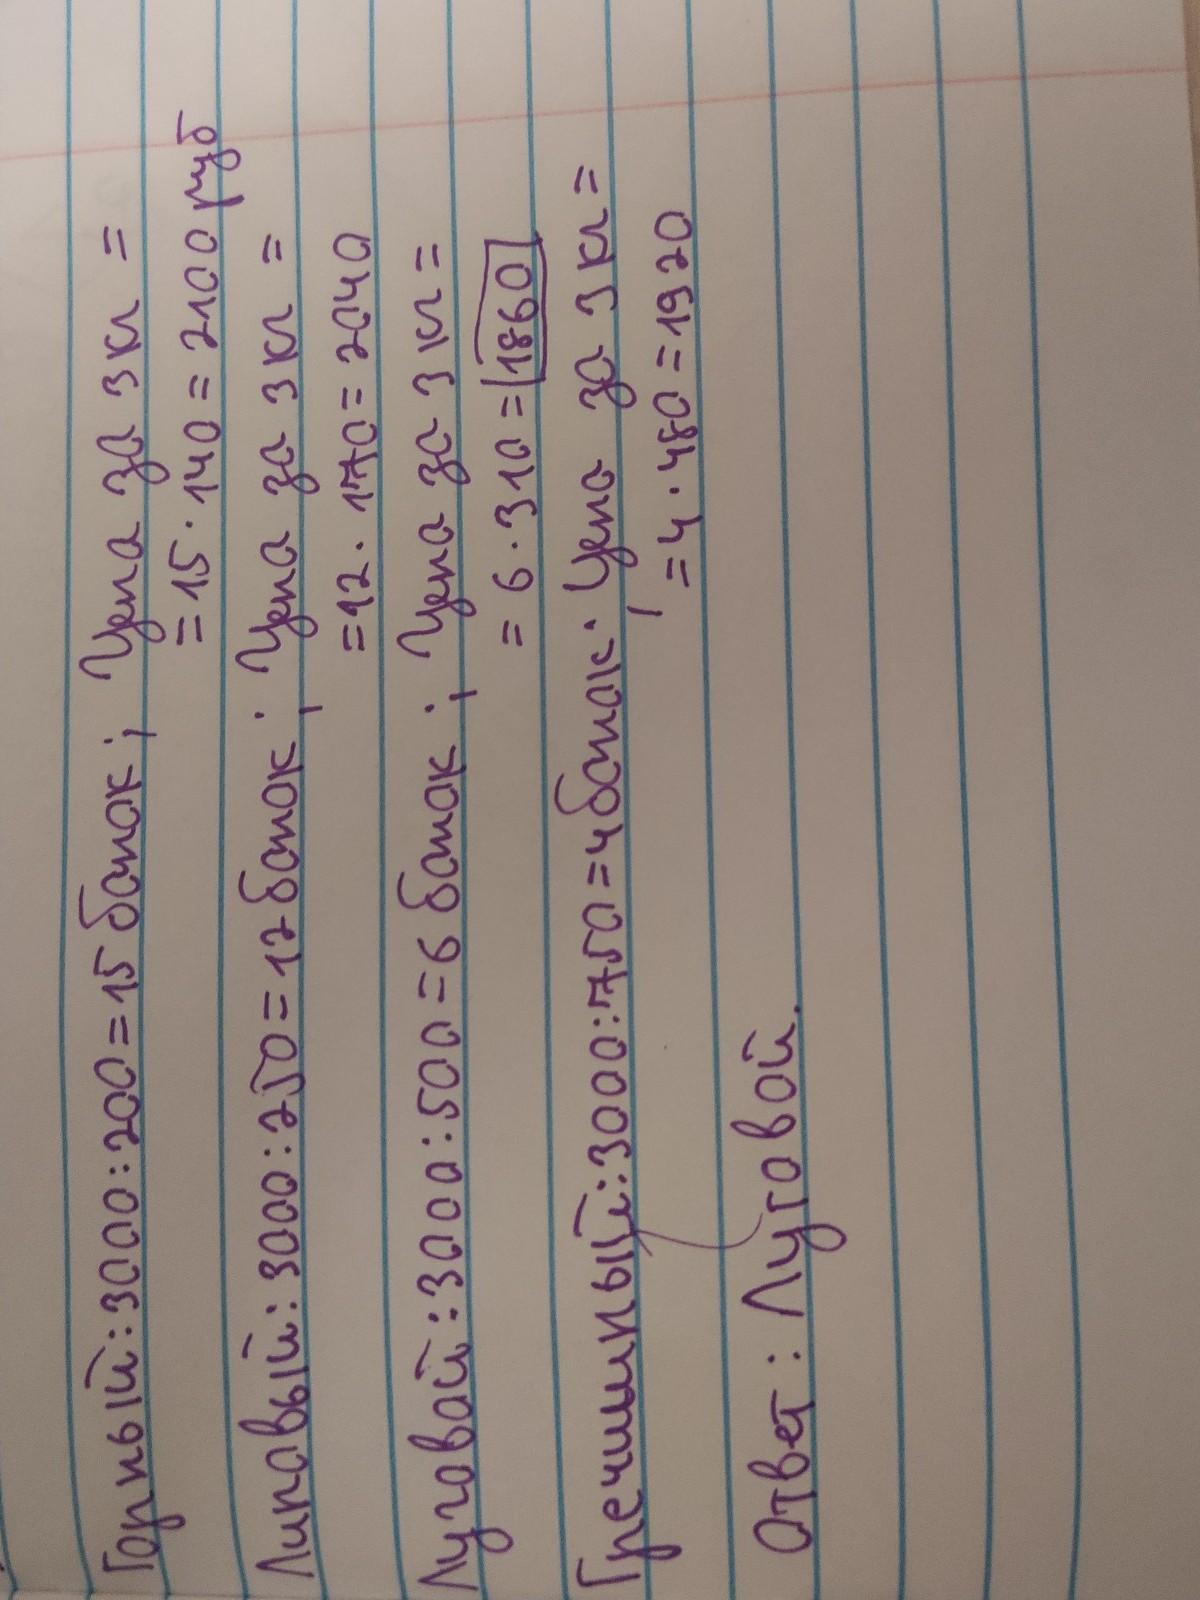 Горный: 3000:200=15 банок; Цена за 3 кг =
=15·140=2100 руб
Липовый: 3000:250=12 банок; Цена за 3 кг =
=12·170=2040
Луговой: 3000:500=6 банок; Цена за 3 кг =
=6·310=1860
Гречишный: 3000:750=4 банок; Цена за 3 кг =
=4·480=1920
Ответ: Луговой.